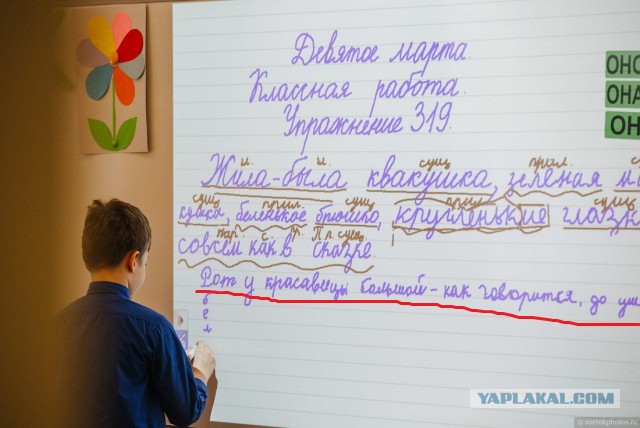 Девятое марта.
Классная работа.
Упражнение 319.
ОНО
ОНА
ОН
сущ прил.
Жила-была квакушка, зелёная
сущ прил. сущ прил. сущ
кушка, беленькое брюшко, кругленькие глазк
сущ.
совсем как в сказке.
Рот у красавицы большой - как говорится, до уш
YAPLAKAL.COM
© vostokphotos.ru